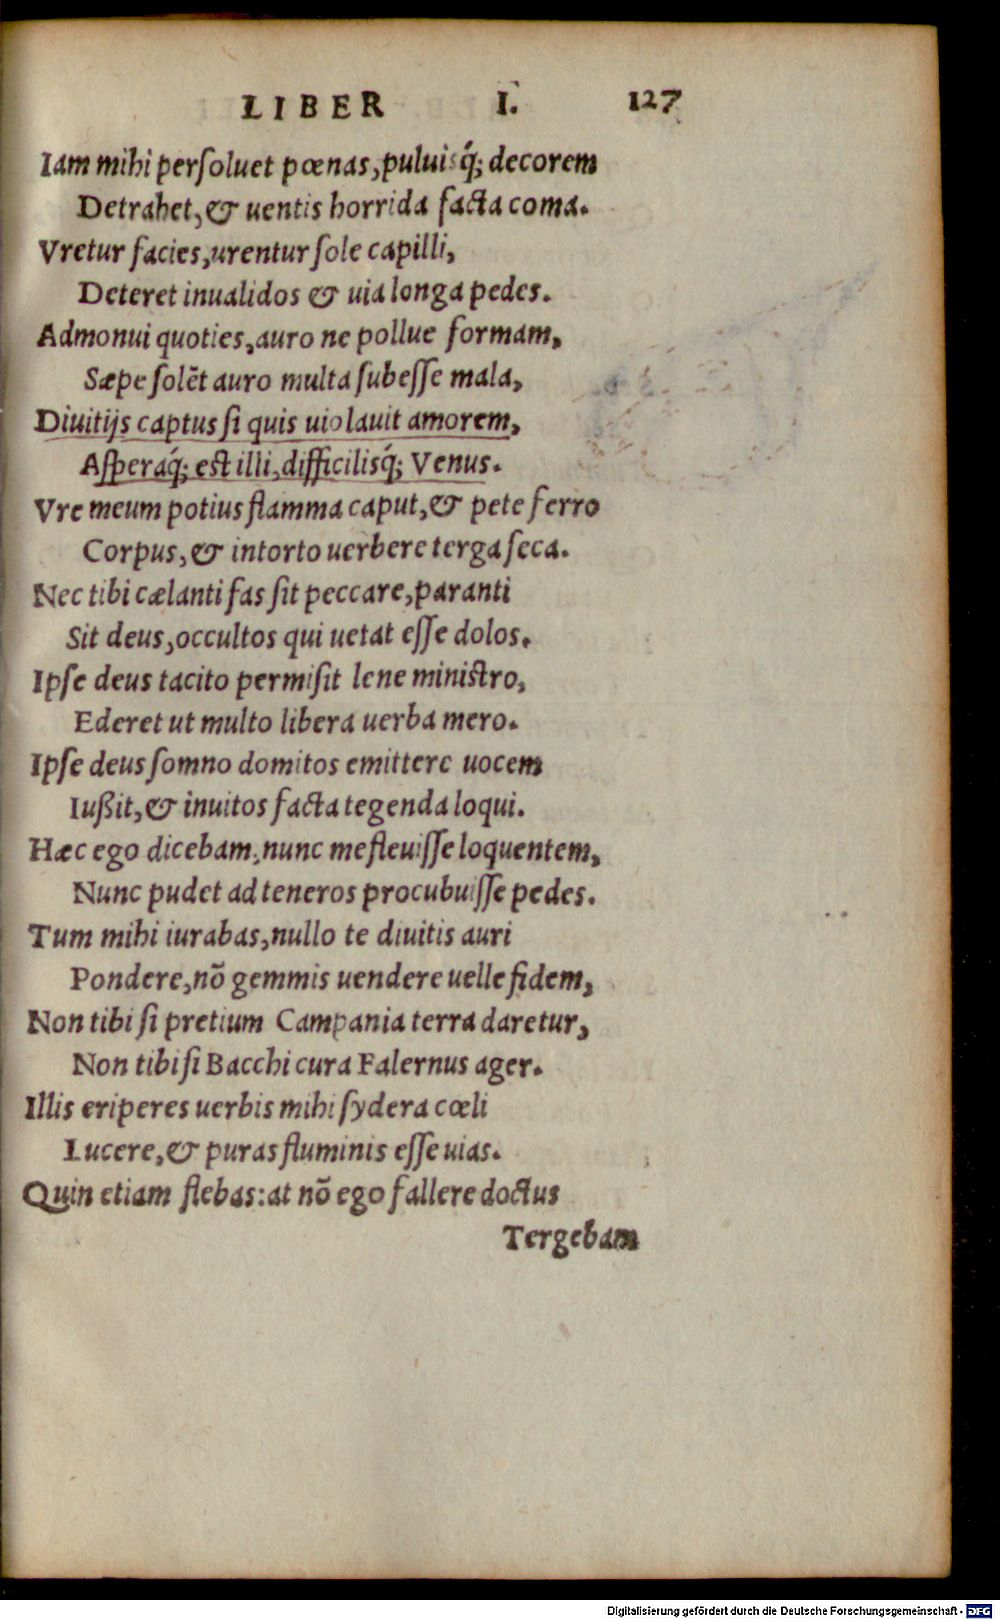 LIBER I. 127
Iam mihi persoluet pœnas, puluisq́; decorem
Detrahet, & uentis horrida facta coma.
Vretur facies, urentur sole capilli,
Deteret inualidos & uia longa pedes.
Admonui quoties, auro ne pollue formam,
Sæpe solẽt auro multa subesse mala,
Diuitijs captus si quis uiolauit amorem,
Asperaq́; est illi, difficilisq́; Venus.
Vre meum potius flamma caput, & pete ferro
Corpus, & intorto uerbere terga seca.
Nec tibi cælanti fas sit peccare, paranti
Sit deus, occultos qui uetat esse dolos.
Ipse deus tacito permisit lene ministro,
Ederet ut multo libera uerba mero.
Ipse deus somno domitos emittere uocem
Iußit, & inuitos facta tegenda loqui.
Hæc ego dicebam, nunc me fleuisse loquentem,
Nunc pudet ad teneros procubuisse pedes.
Tum mihi iurabas, nullo te diuitis auri
Pondere, nõ gemmis uendere uelle fidem,
Non tibi si pretium Campania terra daretur,
Non tibi si Bacchi cura Falernus ager.
Illis eriperes uerbis mihi sydera cœli
Lucere, & puras fluminis esse uias.
Quin etiam flebas: at nõ ego fallere doctus
Tergebam
Digitalisierung gefördert durch die Deutsche Forschungsgemeinschaft - DFG